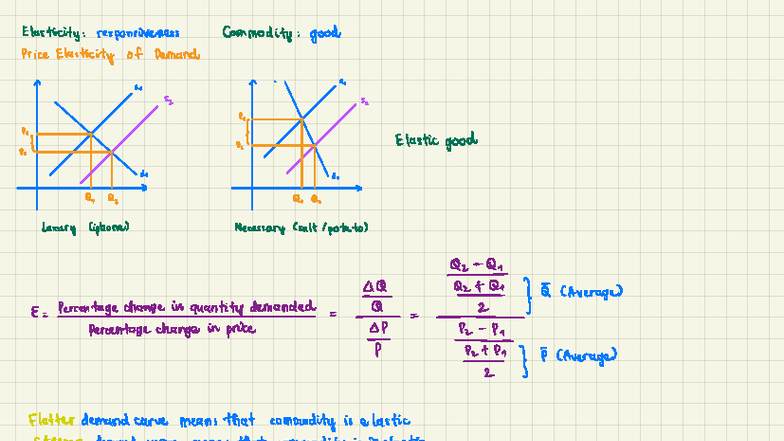 Elasticity: responsiveness
Commodity: good
Price Elasticity of Demand
S1
S2
D1
P1
P2
Q1
Q2
Luxury (iphone)
S1
S2
D1
P1
P2
Q1
Q2
Necessary (salt/potato)
Elastic good
ε = Percentage change in quantity demanded / Percentage change in price = (ΔQ / Q) / (ΔP / P) = ((Q2 - Q1) / ((Q2 + Q1) / 2)) / ((P2 - P1) / ((P2 + P1) / 2))
Q̄ (Average)
P̄ (Average)
Flatter demand curve means that commodity is elastic